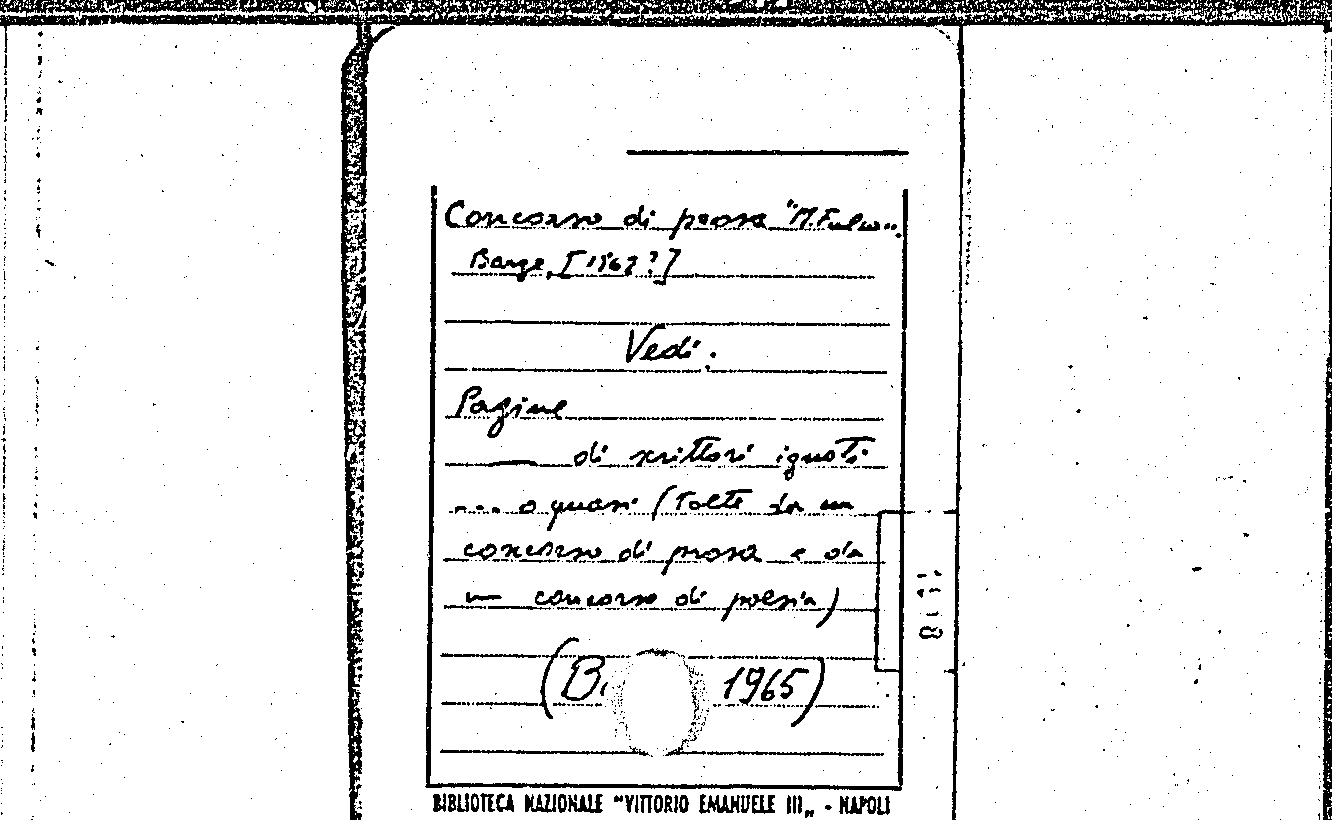 Concorso di prosa "M. Fulvio".
Barge, [1963?]
Vedi:
Pagine
— di scrittori ignoti
... o quasi (Tolte da un
concorso di prosa e da
un concorso di poesia)
(B. 1965)
BIBLIOTECA NAZIONALE "VITTORIO EMANUELE III„ - NAPOLI